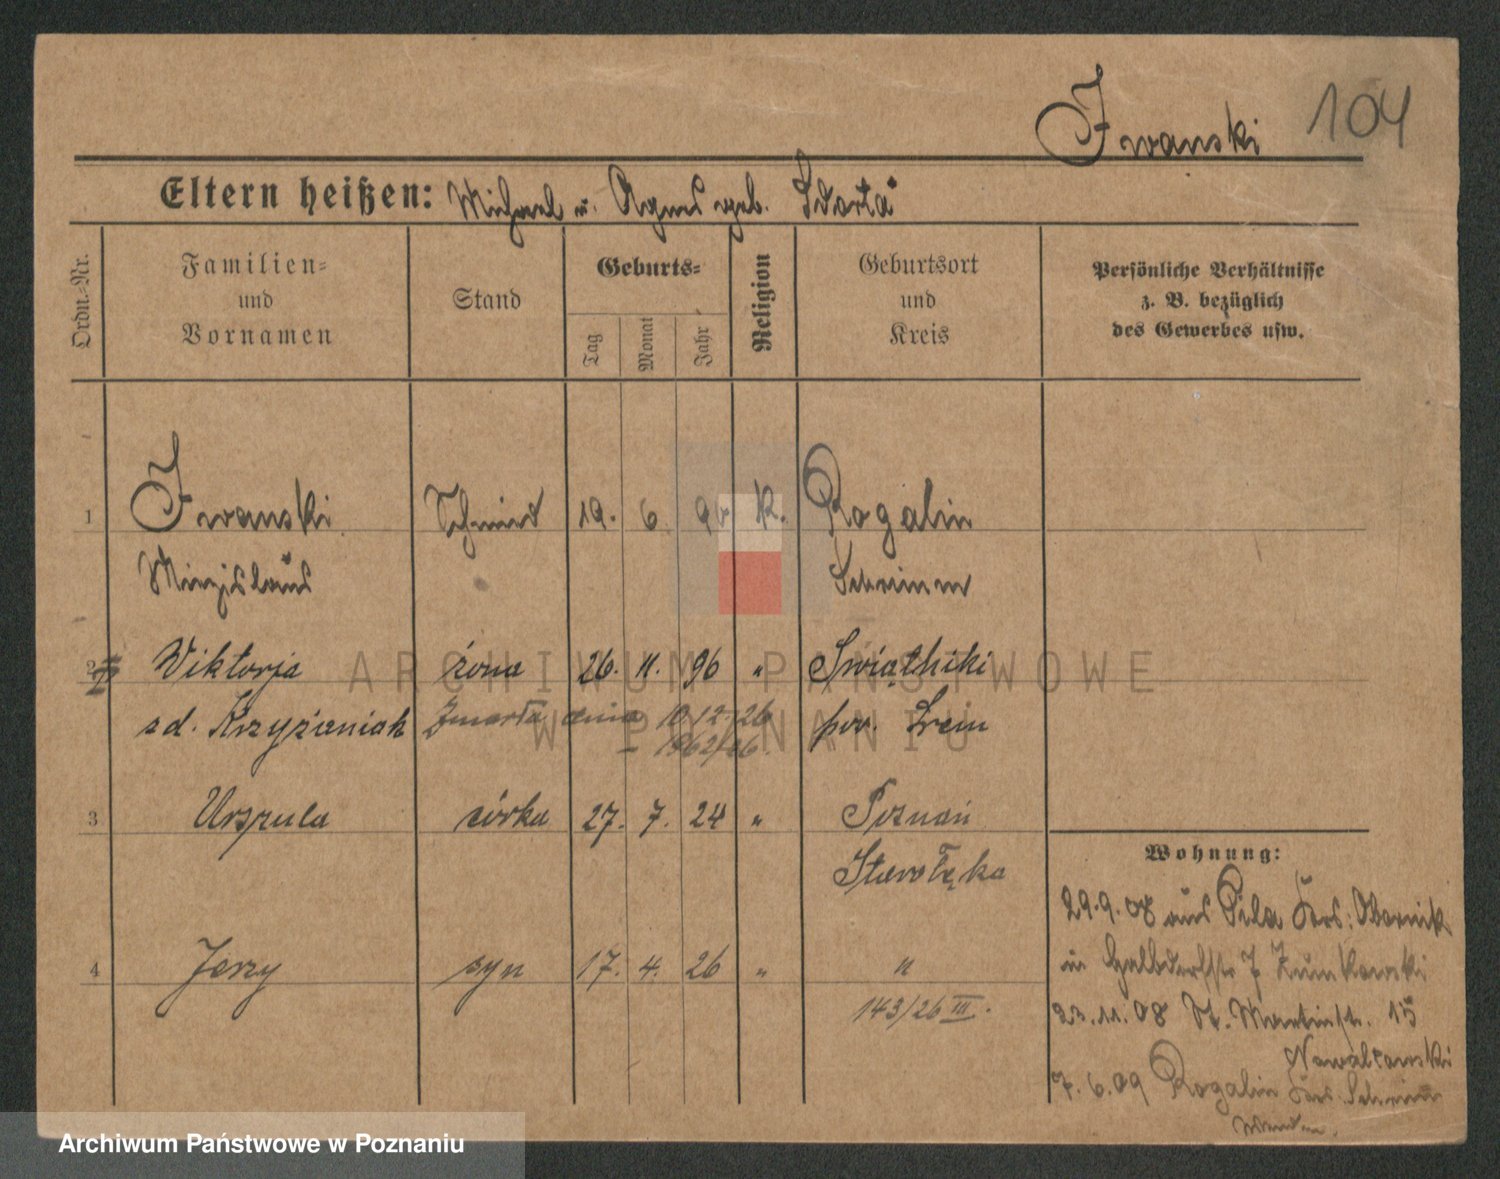 Iwanski 104
Eltern heißen: Michael u. Agnes geb.
Ordn.-Nr.
Familien-
und
Vornamen
Stand
Geburts-
Tag
Monat
Jahr
Religion
Geburtsort
und
Kreis
Persönliche Verhältnisse
z. B. bezüglich
des Gewerbes usw.
1 Iwanski Schmied 19. 6 96 K. Rogalin
Miecislaus Schrimm
2 Wiktorja żona 26. 11. 96 " Swiątniki
zd. Krzyżaniak Zmarła dnia 10/12/26 pow. Śrem
– 1962/26.
3 Urszula córka 27. 7. 24 " Poznań
Starołęka
4 Jerzy syn 17. 4. 26 " "
143/26 III.
Wohnung:
29.9.08 aus Pila Krs: Obornik
in
23.11.08 St. Martinstr. 15
Nowakowski
7.6.09 Rogalin Krs. Schrimm
ARCHIWUM PAŃSTWOWE
W POZNANIU
Archiwum Państwowe w Poznaniu